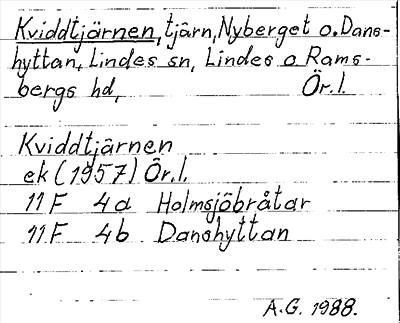 Kviddtjärnen, tjärn, Nyberget o. Dans-
hyttan, Lindes sn, Lindes o Rams-
bergs hd, Ör. l.
Kviddtjärnen
ek (1957) Ör. l.
11F 4a Holmsjöbråtar
11F 4b Danshyttan
A.G. 1988.